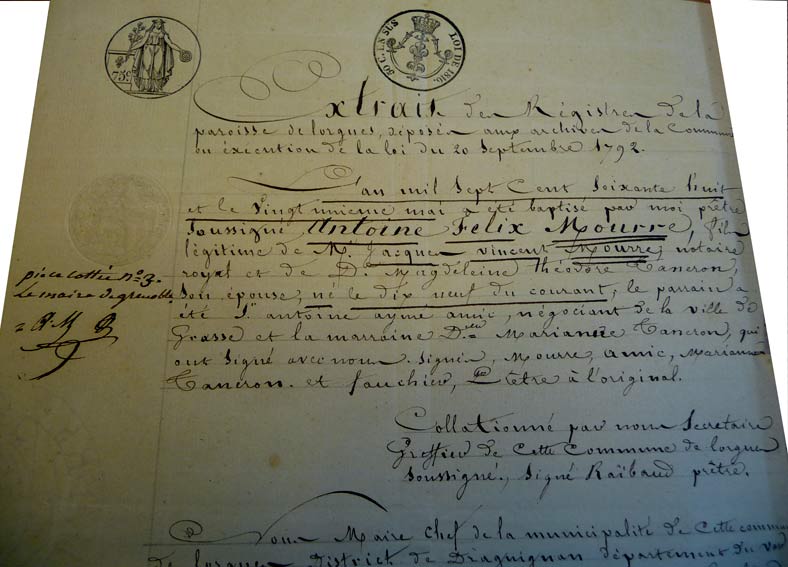 75c.
50 C. EN SUS
LOI DE 1816.
Extrait des Régistres de la
paroisse de lorgues, déposés aux archives de la Commune
en éxécution de la loi du 20 Septembre 1792.
L'an mil Sept Cent Soixante huit
et le vingt unieme mai a été baptisé par moi prêtre
Soussigné Antoine Felix Mourre, fils
légitime de Mr. Jacques vincent Mourre, notaire
royal et de De. Magdéleine théodore Tancron,
Son épouse, né le dix neuf du courant, le parrain a
été Sr. antoine ayme amic, négociant de la ville de
Grasse et la marraine Dlle. Marianne Tancron, qui
ont Signé avec nous. Signés, Mourre, amic, Marianne
Tancron. et fauchier, Ptre. Prêtre à l'original.
pièce cottée no. 3.
Le maire de grenoble
Collationné par nous Secretaire
Greffier de Cette Commune de lorgues
Soussigné, Signé Raïbaud prêtre.
Nous Maire Chef de la municipalité de Cette commune
de lorgues District de Draguignan département du Var